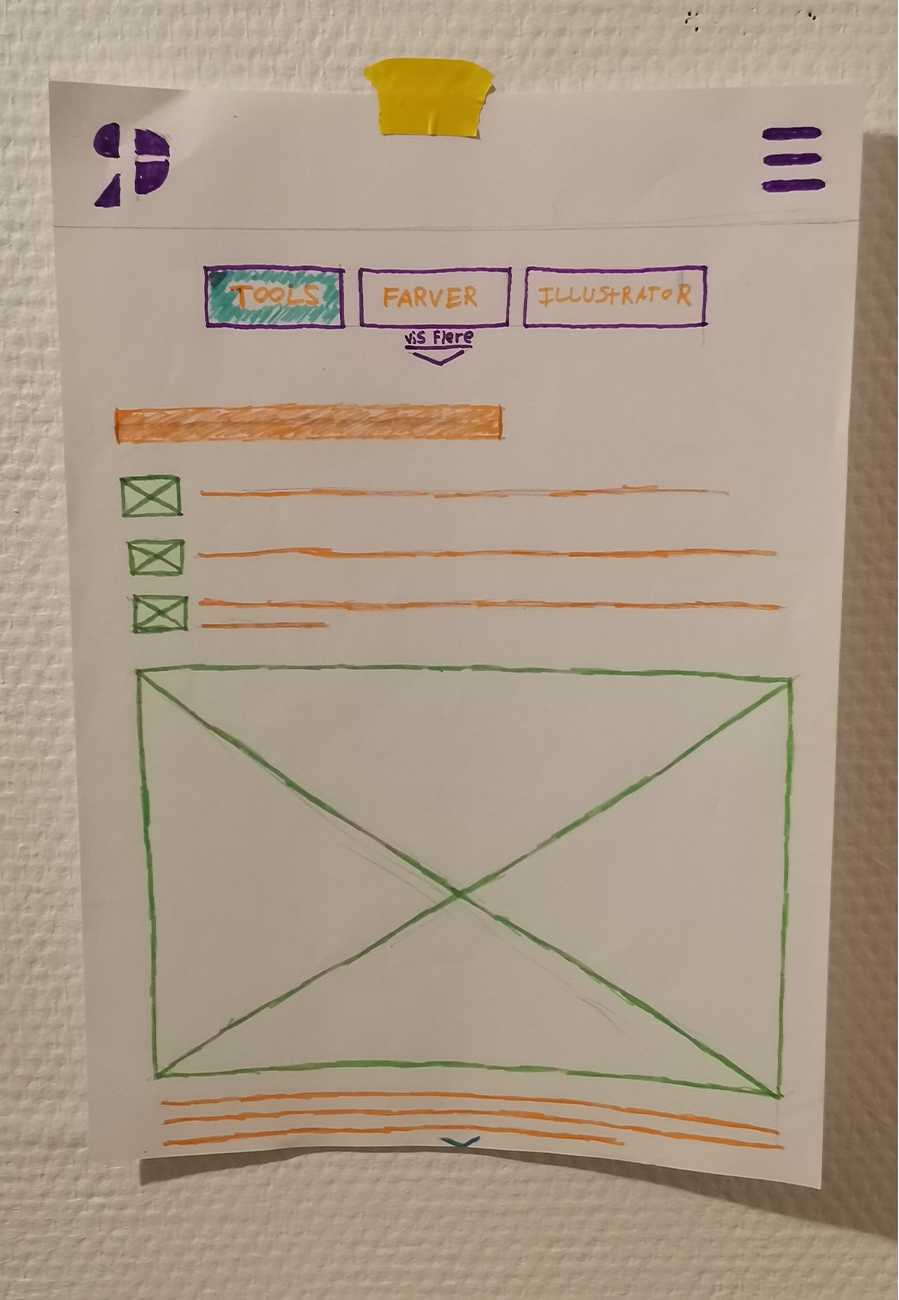 TOOLS FARVER ILLUSTRATOR
vis Flere